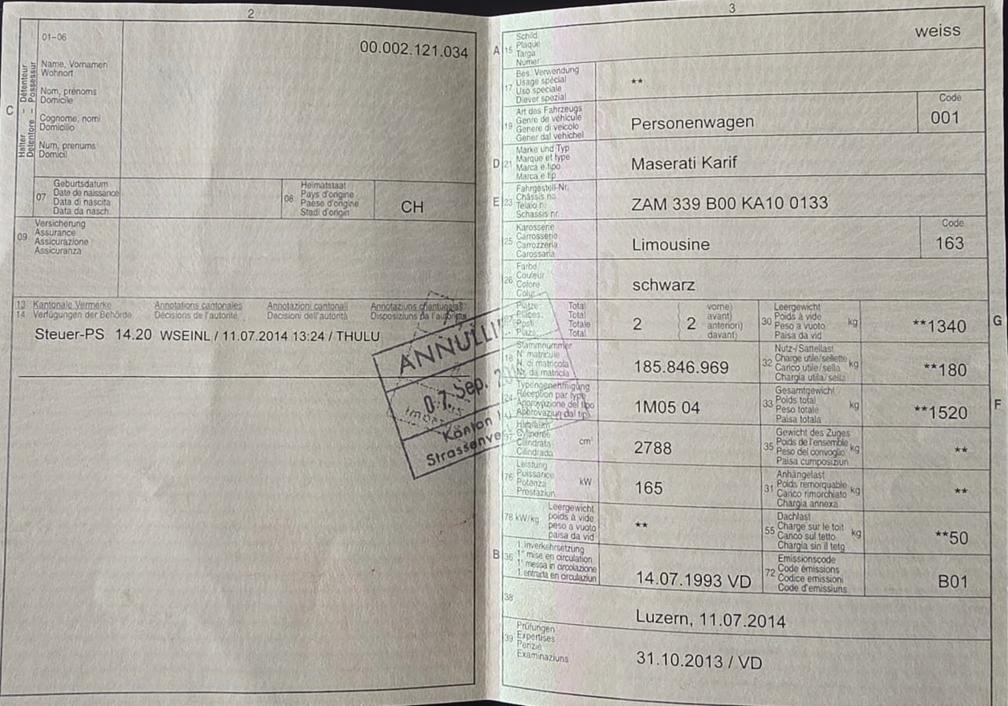 2
01-06
00.002.121.034
C
Halter - Détenteur
Detentore - Possessur
Name, Vornamen
Wohnort
Nom, prénoms
Domicile
Cognome, nomi
Domicilio
Num, prenums
Domicil
07
Geburtsdatum
Date de naissance
Data di nascita
Data da nasch.
08
Heimatstaat
Pays d'origine
Paese d'origine
Stadi d'origin
CH
09
Versicherung
Assurance
Assicurazione
Assicuranza
13 Kantonale Vermerke Annotations cantonales Annotazioni cantonali Annotaziuns chantunalas
14 Verfügungen der Behörde Décisions de l'autorité Decisioni dell'autorità Disposiziuns da l'autorità
Steuer-PS 14.20 WSEINL / 11.07.2014 13:24 / THULU
ANNULLI
07. Sep. 20
Kanton
Strassenve
3
A 15
Schild
Plaque
Targa
Numer
weiss
17
Bes. Verwendung
Usage spécial
Uso speciale
Diever spezial
**
19
Art des Fahrzeugs
Genre de véhicule
Genere di veicolo
Gener dal vehichel
Personenwagen
Code
001
D 21
Marke und Typ
Marque et type
Marca e tipo
Marca e tip
Maserati Karif
E 23
Fahrgestell-Nr.
Châssis no
Telaio n.
Schassis nr.
ZAM 339 B00 KA10 0133
25
Karosserie
Carrosserie
Carrozzeria
Carossaria
Limousine
Code
163
26
Farbe
Couleur
Colore
Colur
schwarz
Plätze Total
Places Total
Posti Totale
Plazs Total
2
2
vorne)
avant)
anteriori)
davant)
30
Leergewicht
Poids à vide
Peso a vuoto
Paisa da vid
kg
**1340
G
18
Stammnummer
N° matricule
N. di matricola
Nr. da matricla
185.846.969
32
Nutz-/Sattellast
Charge utile/sellette
Carico utile/sella
Chargia utila/sella
kg
**180
24
Typengenehmigung
Réception par type
Approvazione del tipo
Approvaziun dal tip
1M05 04
33
Gesamtgewicht
Poids total
Peso totale
Paisa totala
kg
**1520
F
37
Hubraum
Cylindrée
Cilindrata
Cilindrada
cm³
2788
35
Gewicht des Zuges
Poids de l'ensemble
Peso del convoglio
Paisa cumposiziun
kg
**
76
Leistung
Puissance
Potenza
Prestaziun
kW
165
31
Anhängelast
Poids remorquable
Carico rimorchiato
Chargia annexa
kg
**
78 kW/kg
Leergewicht
poids à vide
peso a vuoto
paisa da vid
**
55
Dachlast
Charge sur le toit
Carico sul tetto
Chargia sin il tetg
kg
**50
B 36
1. Inverkehrsetzung
1re mise en circulation
1a messa in circolazione
1. entrada en circulaziun
14.07.1993 VD
72
Emissionscode
Code émissions
Codice emissioni
Code d'emissiuns
B01
38
Luzern, 11.07.2014
39
Prüfungen
Expertises
Perizie
Examinaziuns
31.10.2013 / VD